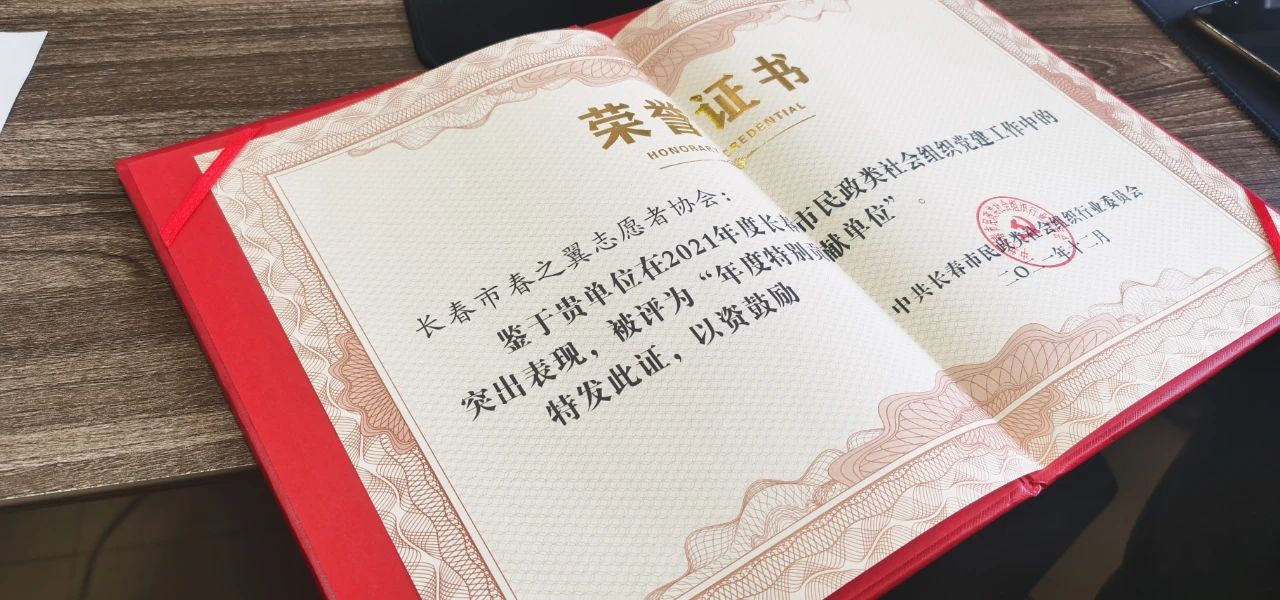 荣誉证书
HONORARY CREDENTIAL
长春市春之翼志愿者协会：
鉴于贵单位在2021年度长春市民政类社会组织党建工作中的
突出表现，被评为“年度特别贡献单位”。
特发此证，以资鼓励
中共长春市民政类社会组织行业委员会
二〇二一年十二月